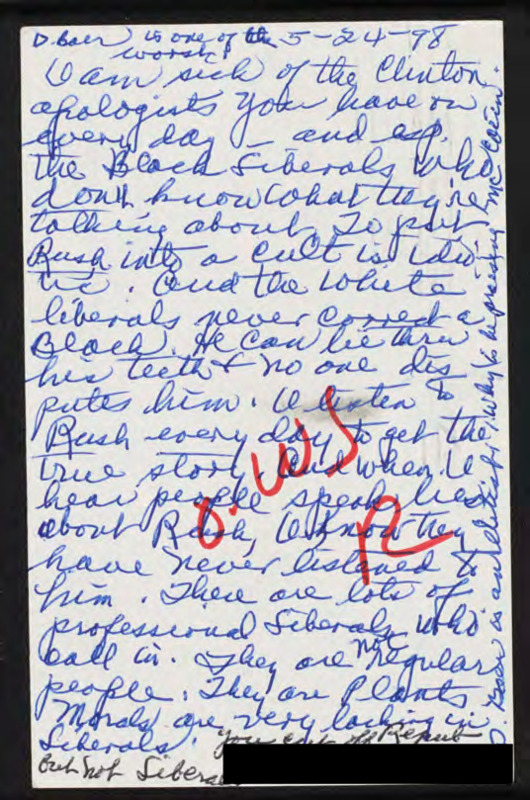 D. Baer is one of the 5-24-98
worst!
I am sick of the Clinton
apologists you have on
every day - and esp.
the Black Liberals who
don't know what they're
talking about. To put
Rush into a cult is idio
tic. And the white
liberals never correct a
Black. He can lie thru
his teeth & no one dis
putes him. I listen to
Rush every day to get the
true story. And when I
hear people speak lies
about Rush, I know they
have never listened to
him. There are lots of
professional Liberals who
call in. They are not regular
people. They are Plants
Morals are very lacking in
Liberals. You cut off Repub
But not Libera
D. Baer is an elitist & why is he praising McCain.
R